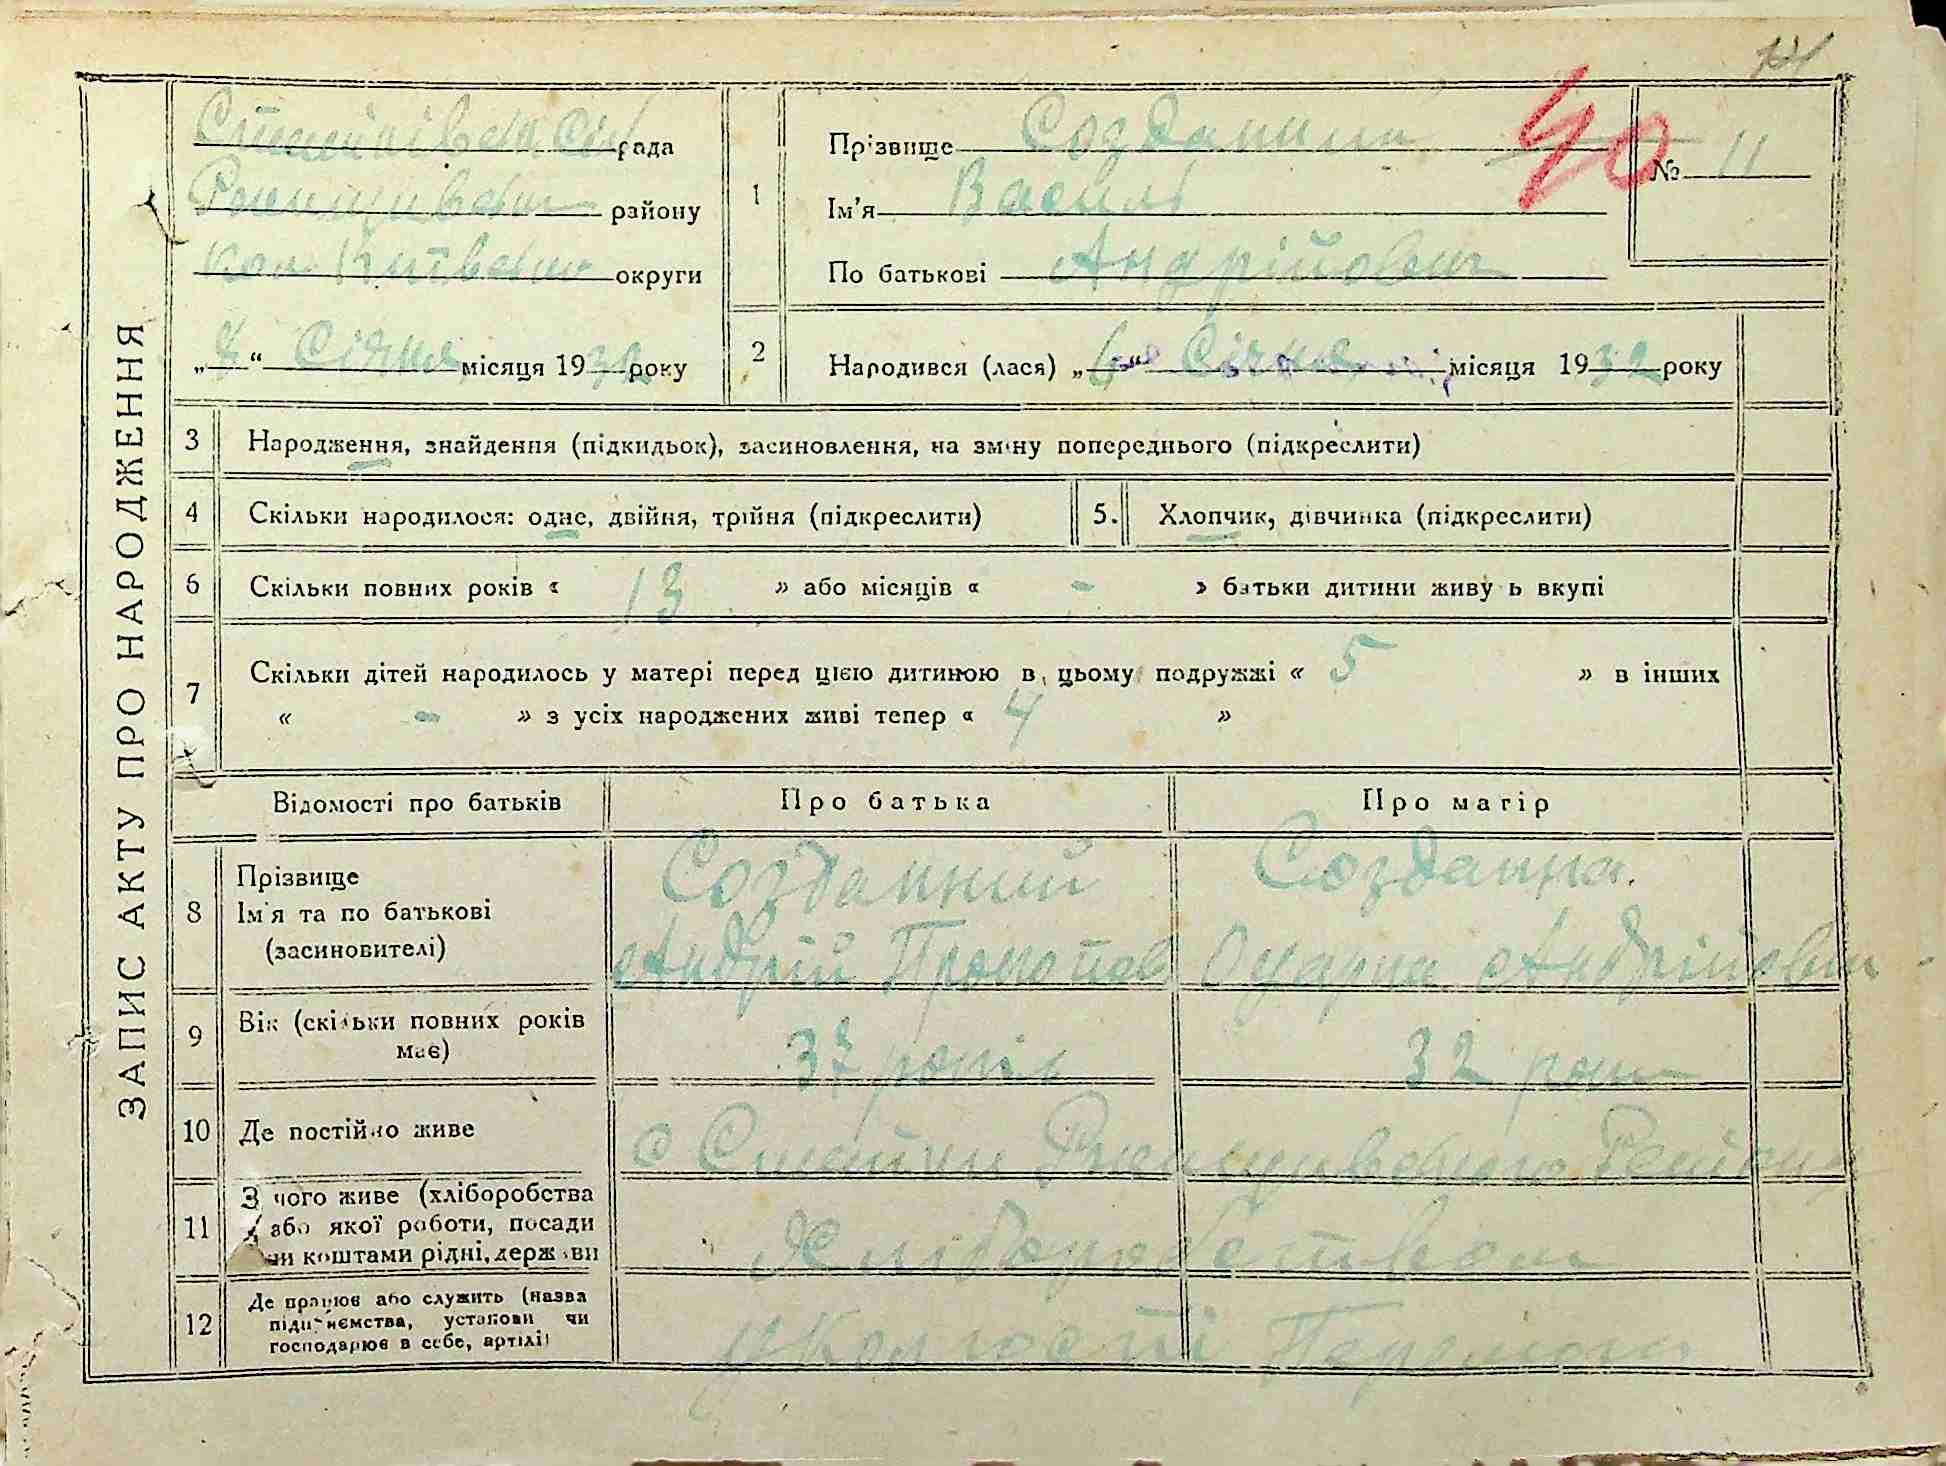 ЗАПИС АКТУ ПРО НАРОДЖЕННЯ
рада
району
Кол. Київської округи
„8“ Січня місяця 1932 року
1
Прізвище Созданний
Ім'я Василь
По батькові Андрійович
40
№ 11
2
Народився (лася) „6“ Січня місяця 1932 року
3 Народження, знайдення (підкидьок), засиновлення, на зміну попереднього (підкреслити)
4 Скільки народилося: одне, двійня, трійня (підкреслити)
5. Хлопчик, дівчинка (підкреслити)
6 Скільки повних років « 13 » або місяців « - » батьки дитини живуть вкупі
7 Скільки дітей народилось у матері перед цією дитиною в цьому подружжі « 5 » в інших
« - » з усіх народжених живі тепер « 4 »
Відомості про батьків
Про батька
Про матір
8 Прізвище
Ім'я та по батькові
(засиновителі)
Созданний
Андрій Прокопов
Созданна
Андріївна
9 Вік (скільки повних років
має)
37 років
32 роки
10 Де постійно живе
с
11 З чого живе (хліборобства
або якої роботи, посади
чи коштами рідні, держави
Хліборобством
12 Де працює або служить (назва
підприємства, установи чи
господарює в себе, артілі)
у Колгоспі Перемога